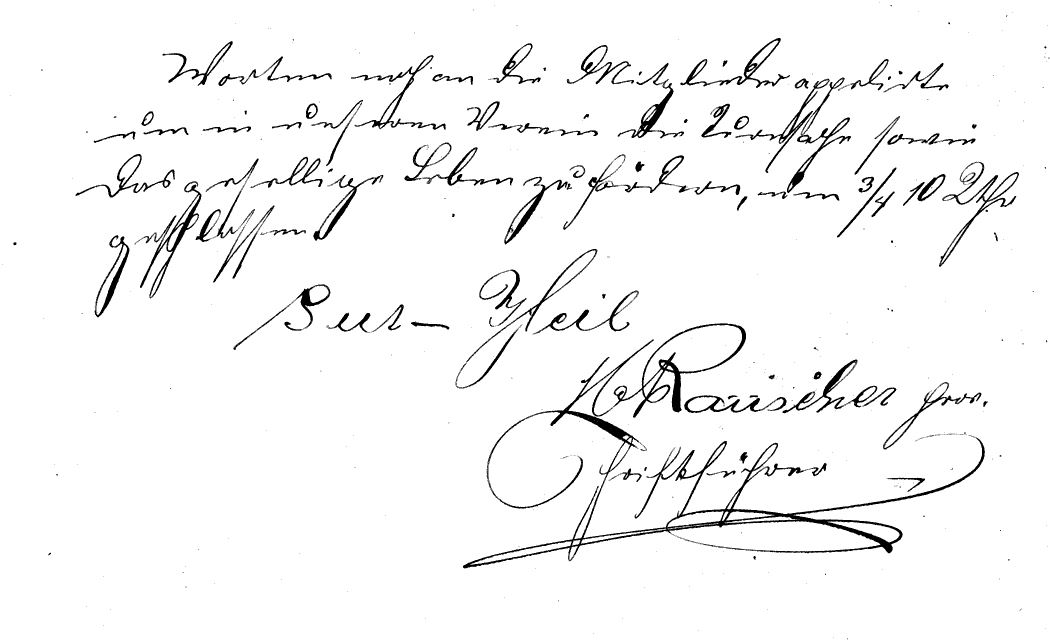 Worten noch an die Mitglieder appelirte
um in unseren Verein die Turnsache sowie
das gesellige Leben zu fördern, um 3/4 10 Uhr
geschlossen.
Gut Heil
H Rauscher prov.
Schriftführer